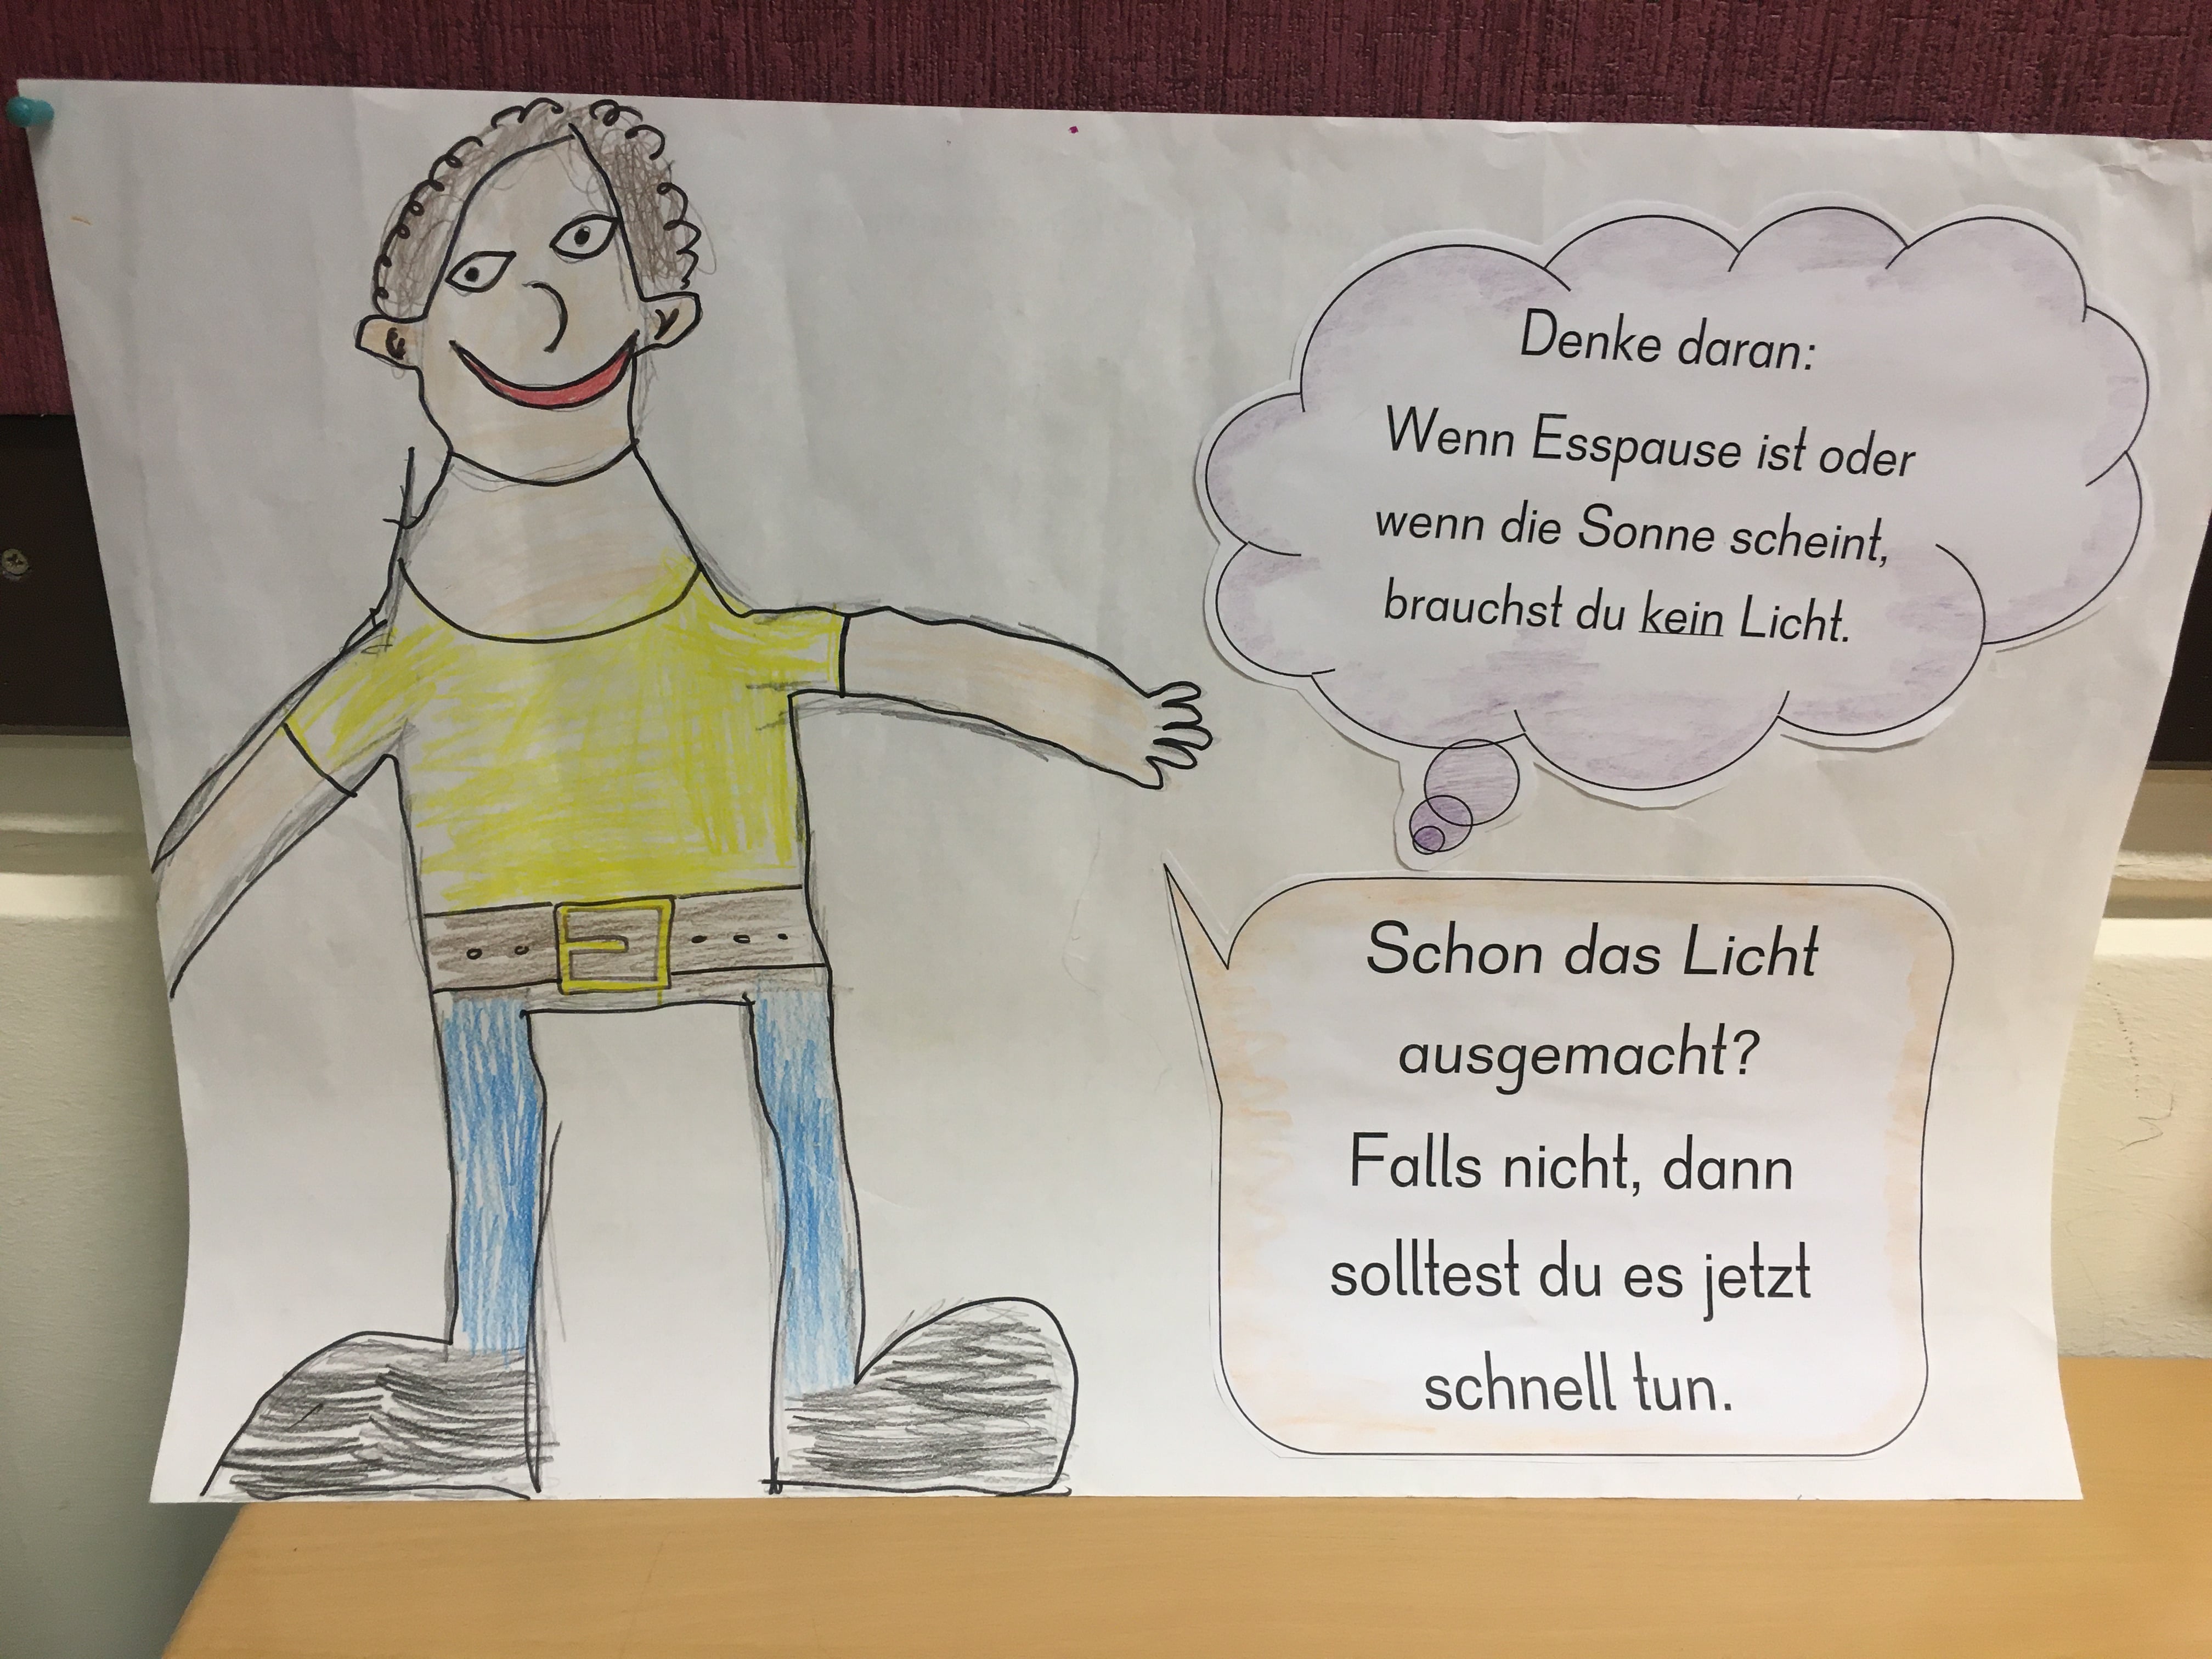 Denke daran:
Wenn Esspause ist oder
wenn die Sonne scheint,
brauchst du kein Licht.
Schon das Licht
ausgemacht?
Falls nicht, dann
solltest du es jetzt
schnell tun.